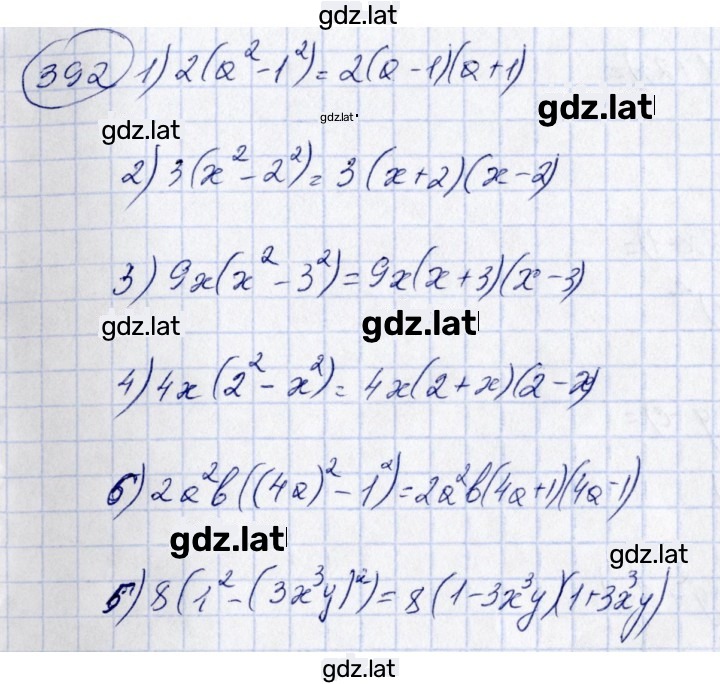 gdz.lat
392 1) 2(a² - 1²) = 2(a - 1)(a + 1)
gdz.lat
gdz.lat
gdz.lat
2) 3(x² - 2²) = 3(x + 2)(x - 2)
3) 9x(x² - 3²) = 9x(x + 3)(x - 3)
gdz.lat
gdz.lat
4) 4x(2² - x²) = 4x(2 + x)(2 - x)
б) 2a²b((4a)² - 1²) = 2a²b(4a + 1)(4a - 1)
gdz.lat
gdz.lat
5) 8(1² - (3x³y)²) = 8(1 - 3x³y)(1 + 3x³y)
gdz.lat